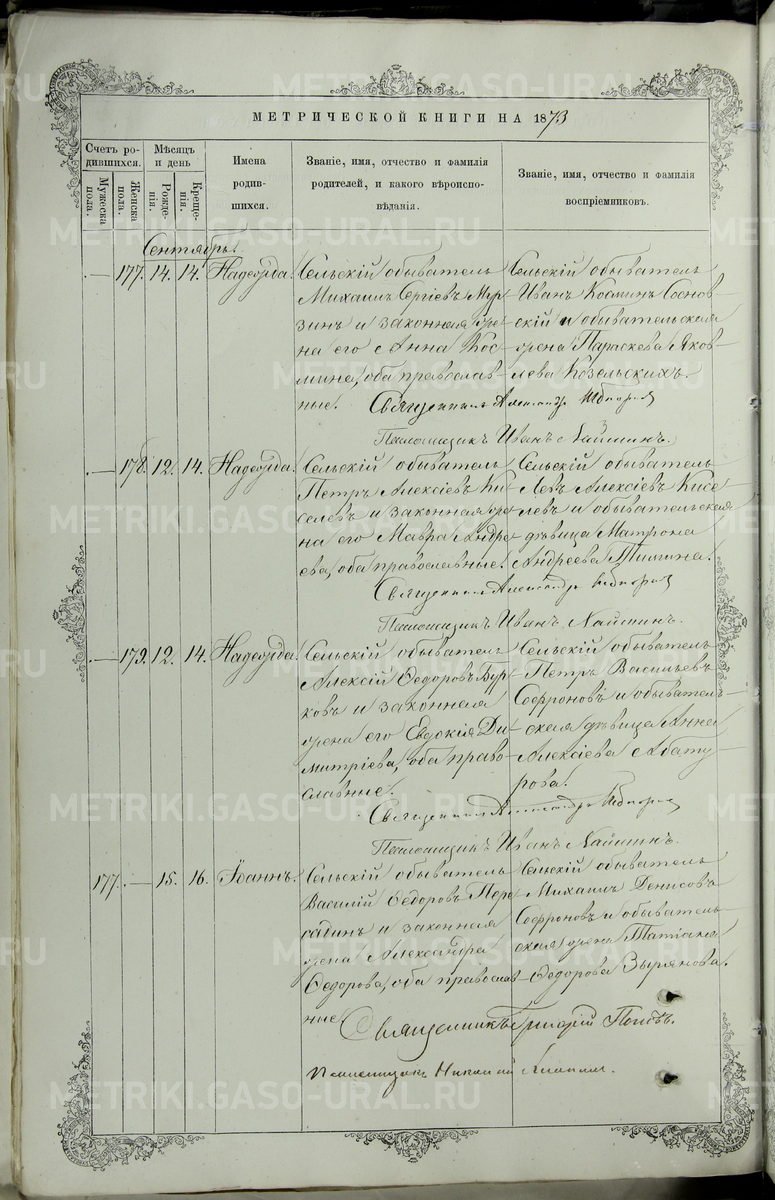 МЕТРИЧЕСКОЙ КНИГИ НА 1873
Счетъ ро-
дившихся.
Мужеска
пола.
Женска
пола.
Мѣсяцъ
и день
Рожде-
нія.
Креще-
нія.
Имена
родив-
шихся.
Званіе, имя, отчество и фамилія
родителей, и какого вѣроиспо-
вѣданія.
Званіе, имя, отчество и фамилія
воспріемниковъ.
Сентябрь.
— 177. 14. 14. Надежда.
Сельскій обыватель
Михаилъ Сергіевъ Мур-
зинъ и законная же-
на его Анна Кос-
мина, оба православ-
ные.
Сельскій обыватель
Иванъ Косминъ Соснов-
скій и обывательская
жена Параскева Яков-
лева Козельскихъ.
Священникъ Александръ
Псаломщикъ Иванъ Лаймин.
— 178. 12. 14. Надежда.
Сельскій обыватель
Петръ Алексіевъ Ки-
селевъ и законная же-
на его Мавра Андре-
ева, оба православные.
Сельскій обыватель
Левъ Алексіевъ Кисе-
левъ и обывательская
дѣвица Матрона
Андреева Тимина.
Священникъ Александръ
Псаломщикъ Иванъ Лаймин.
— 179. 12. 14. Надежда.
Сельскій обыватель
Алексій Ѳедоровъ Бур-
ковъ и законная
жена его Евдокія Ди-
митріева, оба право-
славные.
Сельскій обыватель
Петръ Васильевъ
Софроновъ и обыватель-
ская дѣвица Анна
Алексіева Абату-
рова.
Священникъ Александръ
Псаломщикъ Иванъ Лаймин.
177. — 15. 16. Іоаннъ.
Сельскій обыватель
Василій Ѳедоровъ Поро-
садинъ и законная
жена Александра
Ѳедорова, оба православ-
ные.
Сельскій обыватель
Михаилъ Денисовъ
Софроновъ и обыватель-
ская жена Татіана
Ѳедорова Зырянова.
Священникъ Григорій Поповъ.
Псаломщикъ Николай
METRIKI.GASO-URAL.RU